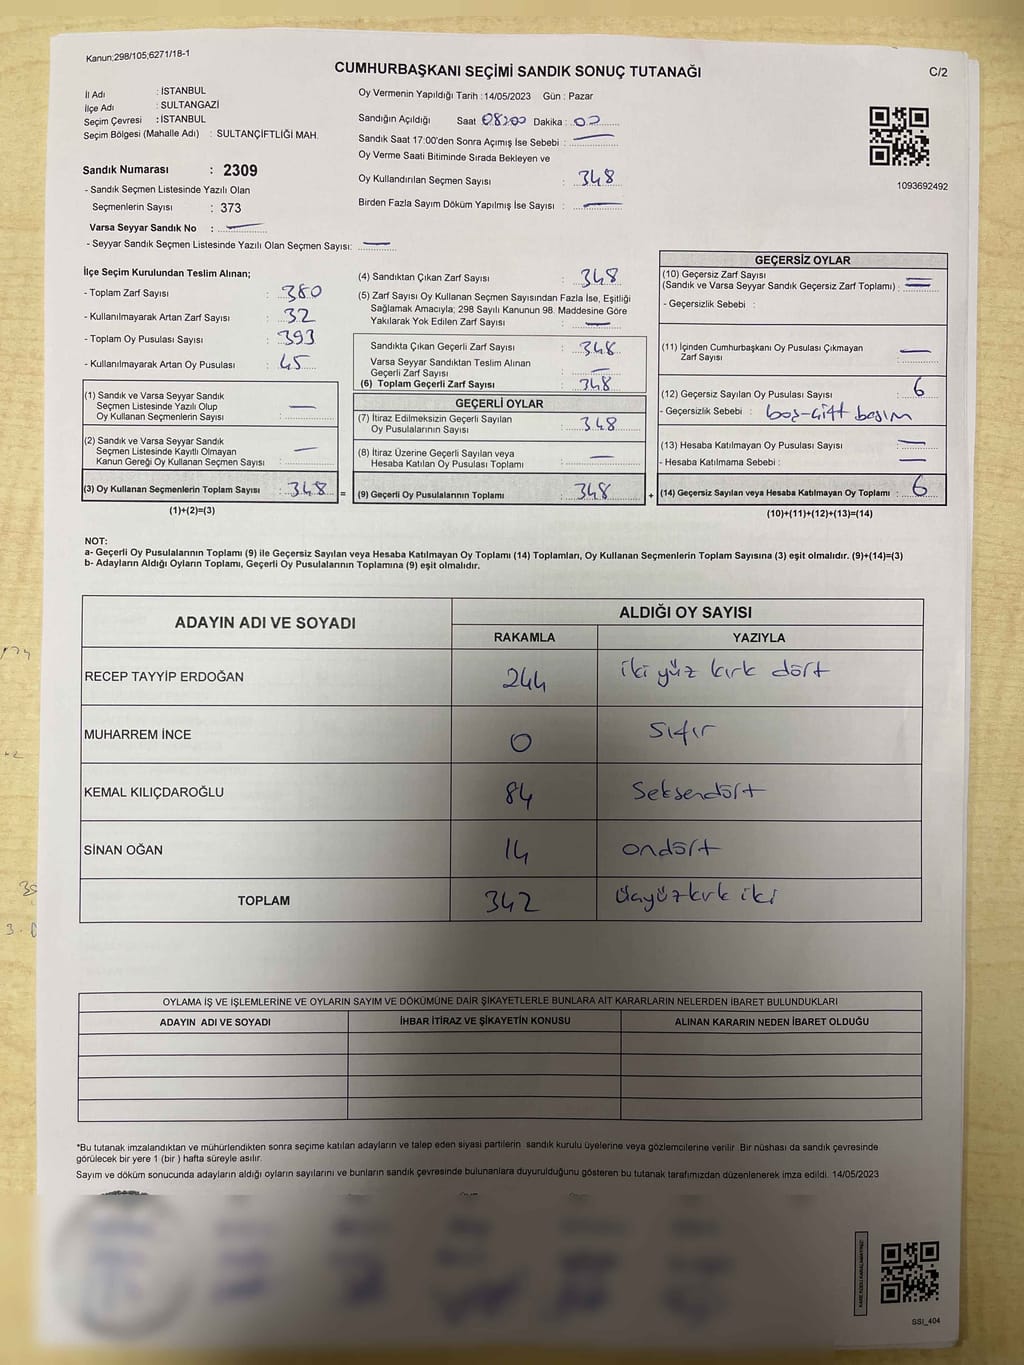 Kanun;298/105;6271/18-1
CUMHURBAŞKANI SEÇİMİ SANDIK SONUÇ TUTANAĞI
C/2
İl Adı : İSTANBUL
İlçe Adı : SULTANGAZİ
Seçim Çevresi : İSTANBUL
Seçim Bölgesi (Mahalle Adı) : SULTANÇİFTLİĞİ MAH.
Sandık Numarası : 2309
- Sandık Seçmen Listesinde Yazılı Olan
Seçmenlerin Sayısı : 373
Varsa Seyyar Sandık No : —
- Seyyar Sandık Seçmen Listesinde Yazılı Olan Seçmen Sayısı: —
Oy Vermenin Yapıldığı Tarih : 14/05/2023 Gün : Pazar
Sandığın Açıldığı Saat 08:00 Dakika : 00
Sandık Saat 17:00'den Sonra Açımış İse Sebebi : —
Oy Verme Saati Bitiminde Sırada Bekleyen ve
Oy Kullandırılan Seçmen Sayısı : 348
Birden Fazla Sayım Döküm Yapılmış İse Sayısı : —
1093692492
İlçe Seçim Kurulundan Teslim Alınan;
- Toplam Zarf Sayısı : 380
- Kullanılmayarak Artan Zarf Sayısı : 32
- Toplam Oy Pusulası Sayısı : 393
- Kullanılmayarak Artan Oy Pusulası : 45
(1) Sandık ve Varsa Seyyar Sandık
Seçmen Listesinde Yazılı Olup
Oy Kullanan Seçmenlerin Sayısı : —
(2) Sandık ve Varsa Seyyar Sandık
Seçmen Listesinde Kayıtlı Olmayan
Kanun Gereği Oy Kullanan Seçmen Sayısı : —
(3) Oy Kullanan Seçmenlerin Toplam Sayısı : 348 =
(1)+(2)=(3)
(4) Sandıktan Çıkan Zarf Sayısı : 348
(5) Zarf Sayısı Oy Kullanan Seçmen Sayısından Fazla İse, Eşitliği
Sağlamak Amacıyla; 298 Sayılı Kanunun 98. Maddesine Göre
Yakılarak Yok Edilen Zarf Sayısı : —
Sandıkta Çıkan Geçerli Zarf Sayısı : 348
Varsa Seyyar Sandıktan Teslim Alınan
Geçerli Zarf Sayısı : —
(6) Toplam Geçerli Zarf Sayısı : 348
GEÇERLİ OYLAR
(7) İtiraz Edilmeksizin Geçerli Sayılan
Oy Pusulalarının Sayısı : 348
(8) İtiraz Üzerine Geçerli Sayılan veya
Hesaba Katılan Oy Pusulası Toplamı : —
(9) Geçerli Oy Pusulalarının Toplamı : 348 +
GEÇERSİZ OYLAR
(10) Geçersiz Zarf Sayısı
(Sandık ve Varsa Seyyar Sandık Geçersiz Zarf Toplamı) : —
- Geçersizlik Sebebi :
(11) İçinden Cumhurbaşkanı Oy Pusulası Çıkmayan
Zarf Sayısı : —
(12) Geçersiz Sayılan Oy Pusulası Sayısı : 6
- Geçersizlik Sebebi : boş-çift basım
(13) Hesaba Katılmayan Oy Pusulası Sayısı : —
- Hesaba Katılmama Sebebi : —
(14) Geçersiz Sayılan veya Hesaba Katılmayan Oy Toplamı : 6
(10)+(11)+(12)+(13)=(14)
NOT:
a- Geçerli Oy Pusulalarının Toplamı (9) ile Geçersiz Sayılan veya Hesaba Katılmayan Oy Toplamı (14) Toplamları, Oy Kullanan Seçmenlerin Toplam Sayısına (3) eşit olmalıdır. (9)+(14)=(3)
b- Adayların Aldığı Oyların Toplamı, Geçerli Oy Pusulalarının Toplamına (9) eşit olmalıdır.
ADAYIN ADI VE SOYADI
ALDIĞI OY SAYISI
RAKAMLA YAZIYLA
RECEP TAYYİP ERDOĞAN 244 iki yüz kırk dört
MUHARREM İNCE 0 Sıfır
KEMAL KILIÇDAROĞLU 84 Seksendört
SİNAN OĞAN 14 ondört
TOPLAM 342 Üçyüzkırk iki
OYLAMA İŞ VE İŞLEMLERİNE VE OYLARIN SAYIM VE DÖKÜMÜNE DAİR ŞİKAYETLERLE BUNLARA AİT KARARLARIN NELERDEN İBARET BULUNDUKLARI
ADAYIN ADI VE SOYADI İHBAR İTİRAZ VE ŞİKAYETİN KONUSU ALINAN KARARIN NEDEN İBARET OLDUĞU
*Bu tutanak imzalandıktan ve mühürlendikten sonra seçime katılan adayların ve talep eden siyasi partilerin sandık kurulu üyelerine veya gözlemcilerine verilir. Bir nüshası da sandık çevresinde
görülecek bir yere 1 (bir ) hafta süreyle asılır.
Sayım ve döküm sonucunda adayların aldığı oyların sayılarını ve bunların sandık çevresinde bulunanlara duyurulduğunu gösteren bu tutanak tarafımızdan düzenlenerek imza edildi. 14/05/2023
SSI_404